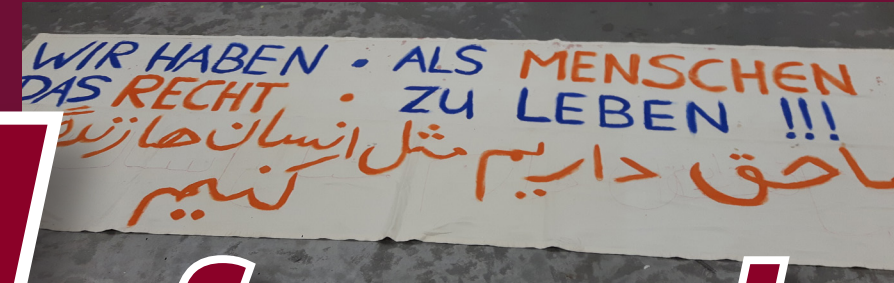 WIR HABEN • ALS MENSCHEN
DAS RECHT • ZU LEBEN !!!
حق داریم مثل انسان ها
کنیم